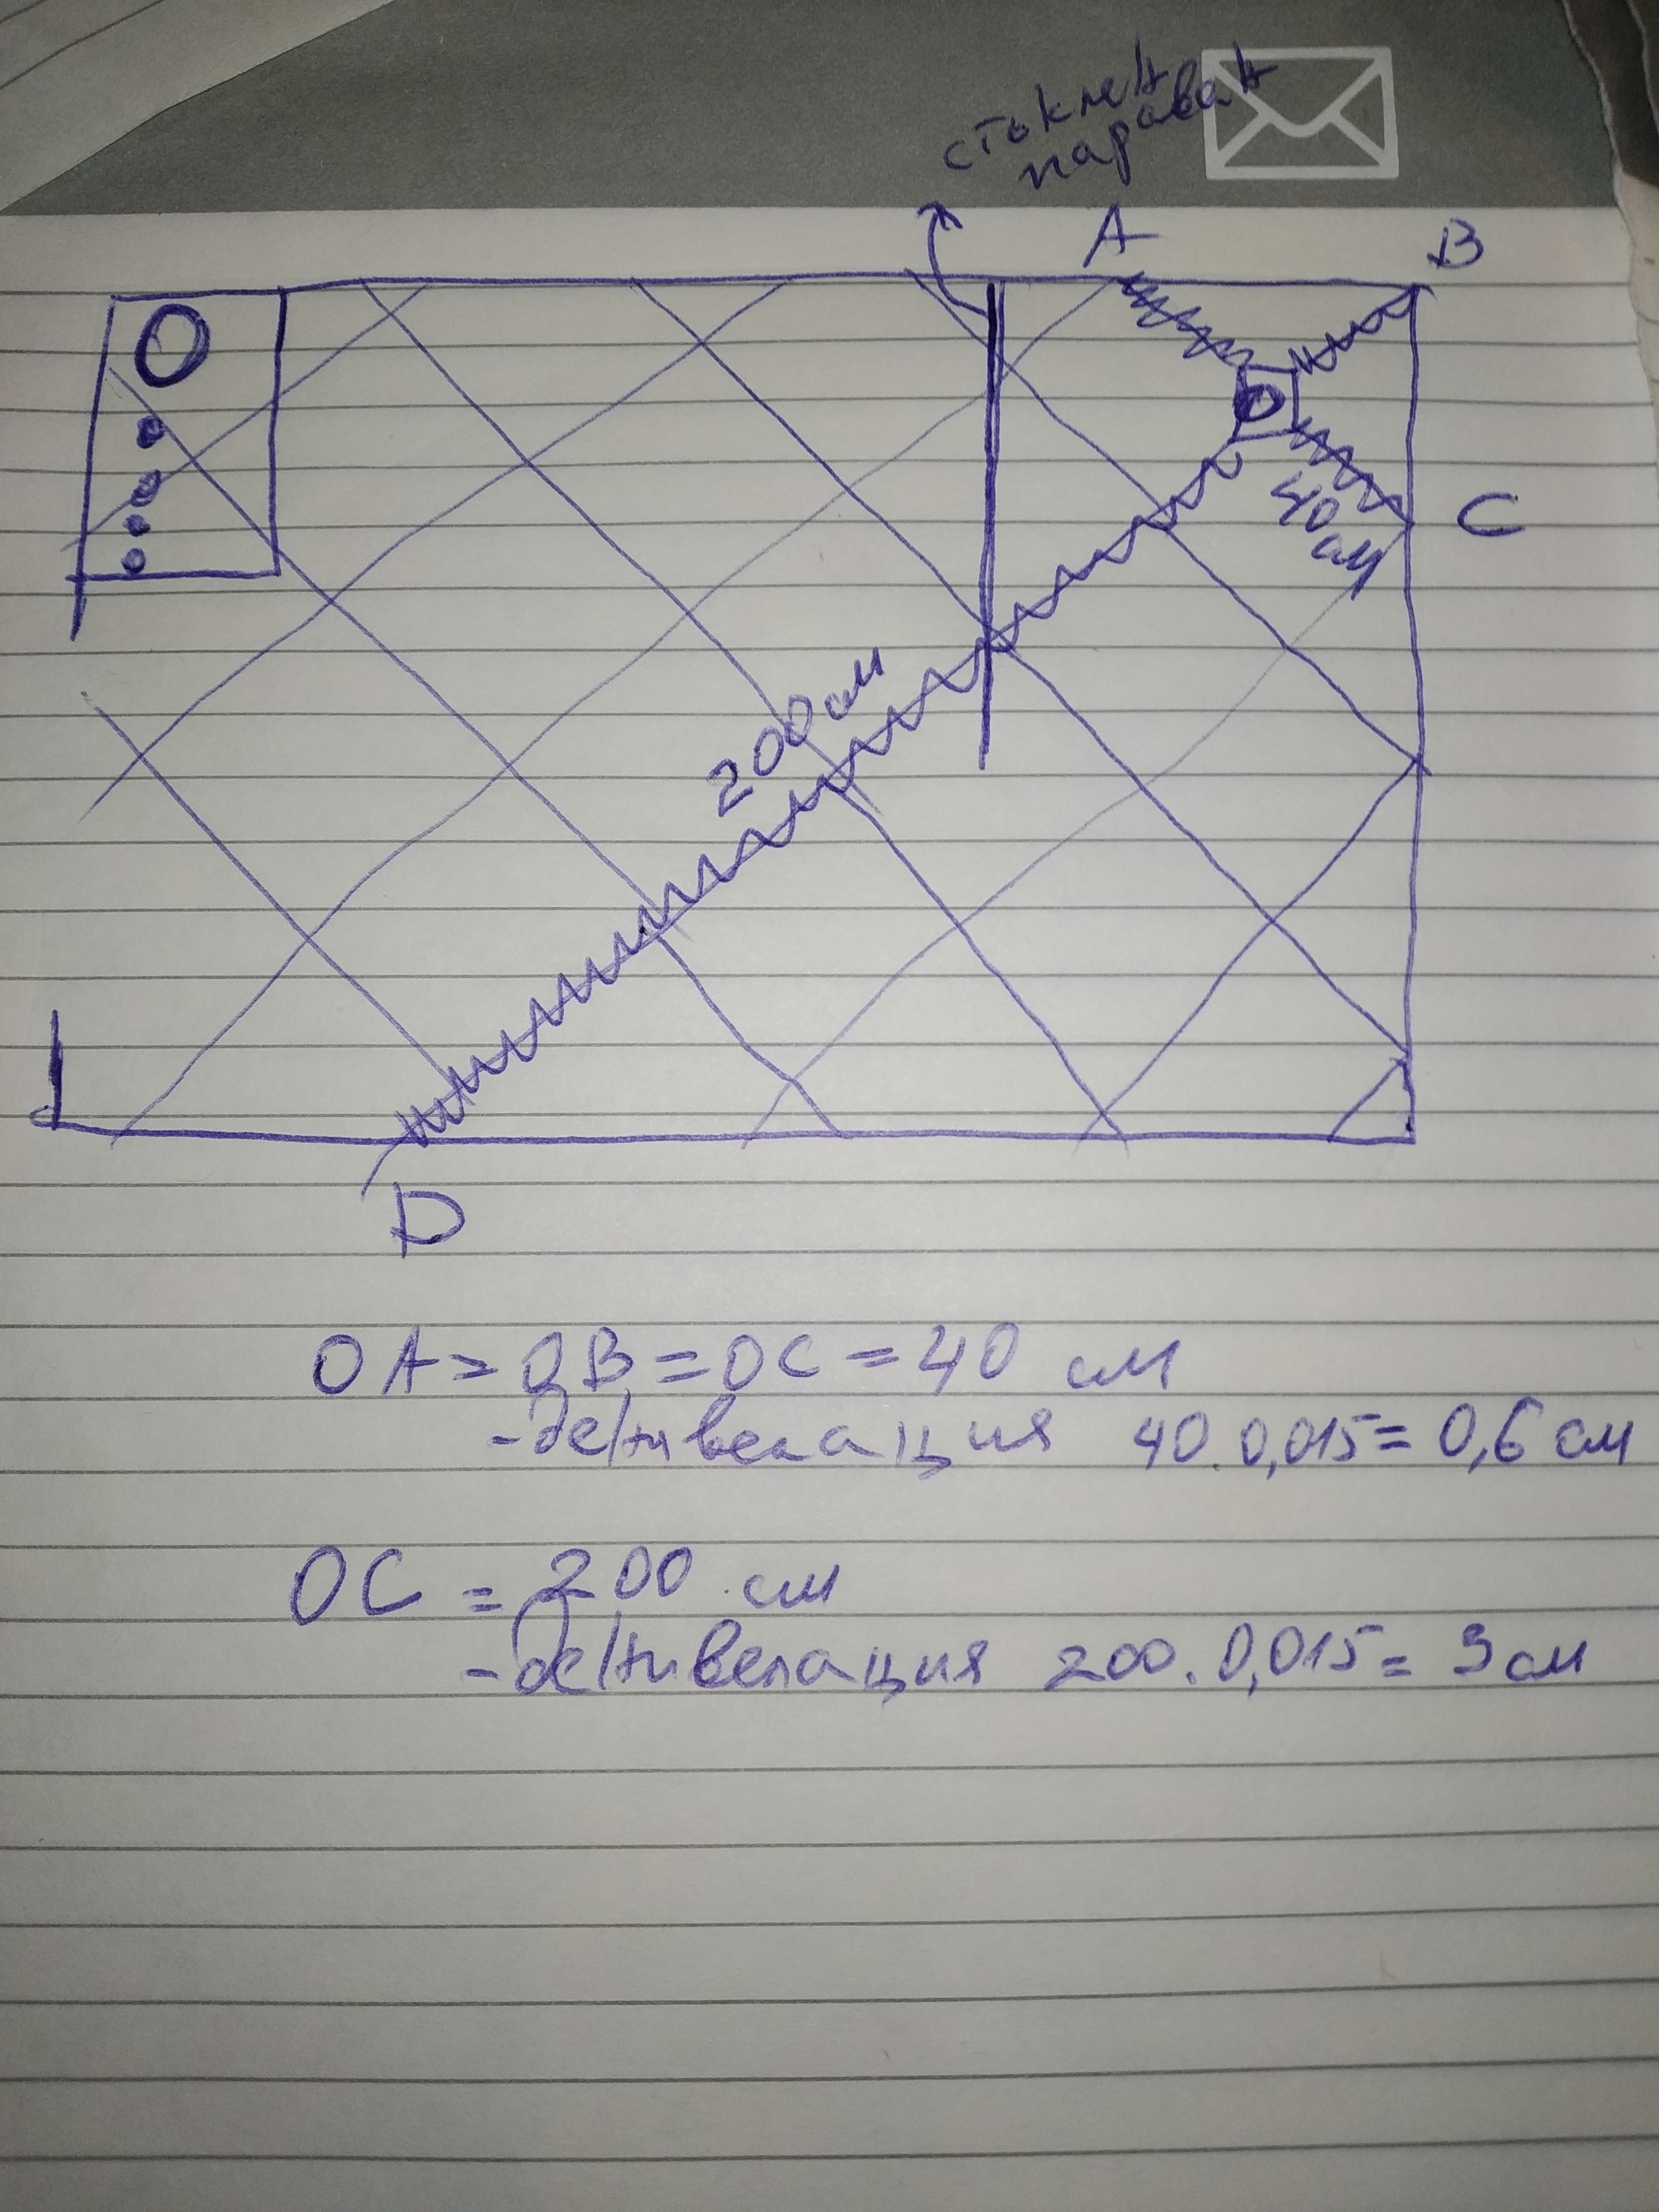 стъклен
параван
A
B
O
40
см
C
200см
D
OA = OB = OC = 40 см
- денивелация 40.0,015 = 0,6 см
OC = 200 см
- денивелация 200.0,015 = 3 см